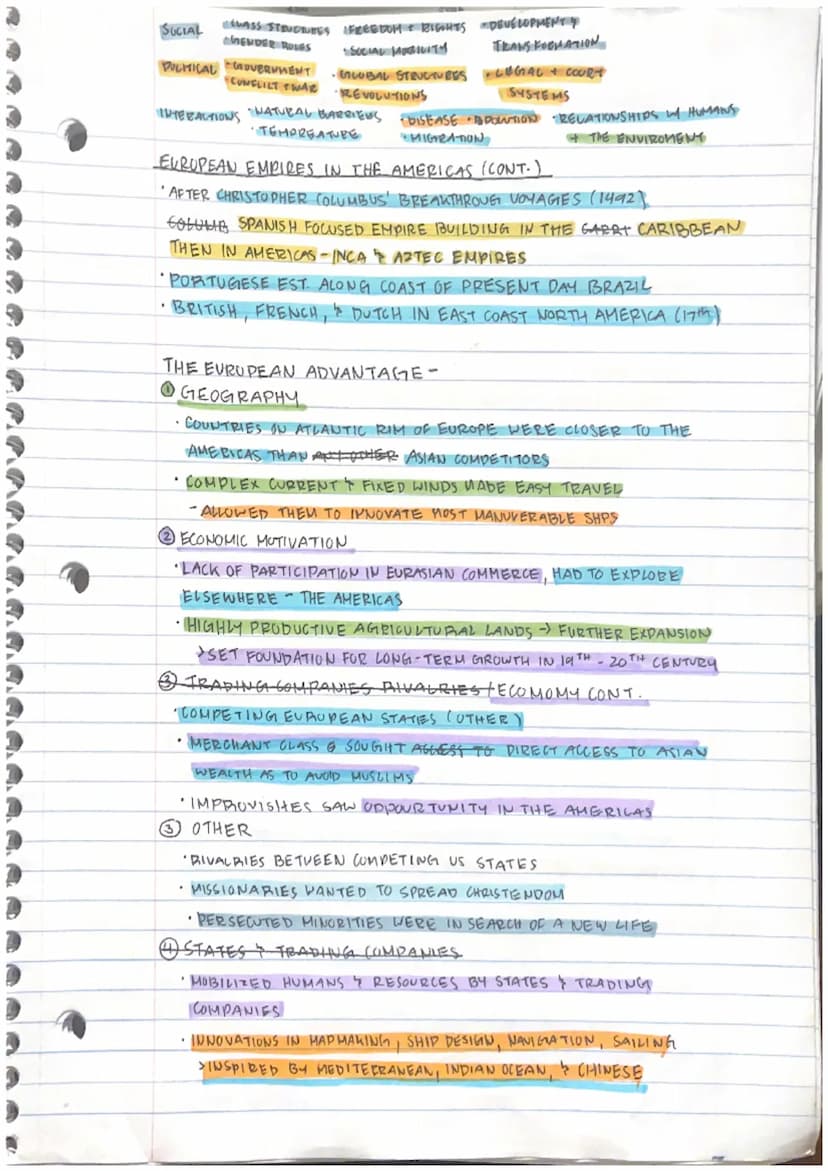 SOCIAL • CLASS STRUCTURES • FREEDOM + RIGHTS • DEVELOPMENT &
• GENDER ROLES • SOCIAL MOBILITY TRANSFORMATION
POLITICAL • GOVERNMENT • GLOBAL STRUCTURES • LEGAL + COURT
• CONFLICT + WAR • REVOLUTIONS SYSTEMS
INTERACTIONS • NATURAL BARRIERS • DISEASE • RELATIONSHIPS W HUMANS
• TEMPREATURE • MIGRATION + THE ENVIROMENT
EUROPEAN EMPIRES IN THE AMERICAS (CONT.)
• AFTER CHRISTOPHER COLUMBUS' BREAKTHROUG VOYAGES (1492)
COLUMB SPANISH FOCUSED EMPIRE BUILDING IN THE CARRI CARIBBEAN
THEN IN AMERICAS - INCA & AZTEC EMPIRES
• PORTUGESE EST. ALONG COAST OF PRESENT DAY BRAZIL
• BRITISH, FRENCH, & DUTCH IN EAST COAST NORTH AMERICA (17th)
THE EUROPEAN ADVANTAGE -
① GEOGRAPHY
• COUNTRIES ON ATLANTIC RIM OF EUROPE WERE CLOSER TO THE
AMERICAS THAN ANY OTHER ASIAN COMPETITORS
• COMPLEX CURRENT & FIXED WINDS MADE EASY TRAVEL
- ALLOWED THEM TO INNOVATE MOST MANUVERABLE SHPS
② ECONOMIC MOTIVATION
• LACK OF PARTICIPATION IN EURASIAN COMMERCE, HAD TO EXPLORE
ELSEWHERE - THE AMERICAS
• HIGHLY PRODUCTIVE AGRICULTURAL LANDS → FURTHER EXPANSION
> SET FOUNDATION FOR LONG-TERM GROWTH IN 19TH - 20TH CENTURY
③ TRADING COMPANIES RIVALRIES / ECOMOMY CONT.
• COMPETING EUROPEAN STATES (OTHER)
• MERCHANT CLASS & SOUGHT ACCESS TO DIRECT ACCESS TO ASIAN
WEALTH AS TO AVOID MUSLIMS
• IMPROVISHES SAW OPPOURTUNITY IN THE AMERICAS
③ OTHER
• RIVALRIES BETWEEN COMPETING US STATES
• MISSIONARIES WANTED TO SPREAD CHRISTENDOM
• PERSECUTED MINORITIES WERE IN SEARCH OF A NEW LIFE
④ STATES & TRADING COMPANIES
• MOBILIZED HUMANS & RESOURCES BY STATES & TRADING
COMPANIES
• INNOVATIONS IN MAPMAKING, SHIP DESIGN, NAVIGATION, SAILING
> INSPIRED BY MEDITERRANEAN, INDIAN OCEAN, & CHINESE